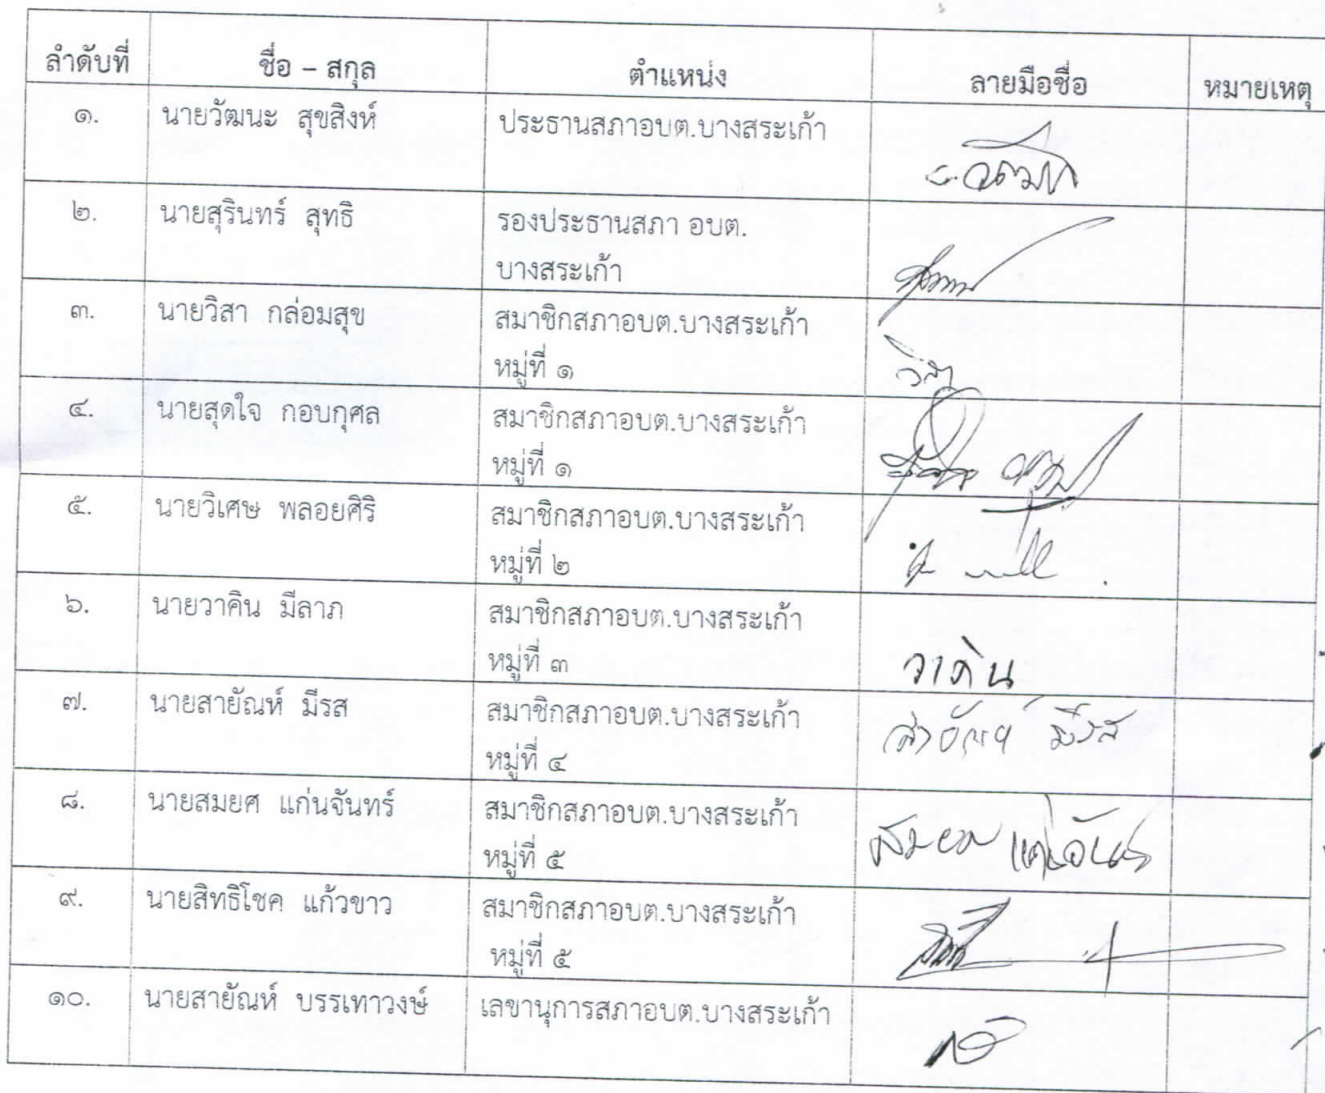 ลำดับที่ ชื่อ – สกุล ตำแหน่ง ลายมือชื่อ หมายเหตุ
๑. นายวัฒนะ สุขสิงห์ ประธานสภาอบต.บางสระเก้า
๒. นายสุรินทร์ สุทธิ รองประธานสภา อบต.
บางสระเก้า
๓. นายวิสา กล่อมสุข สมาชิกสภาอบต.บางสระเก้า
หมู่ที่ ๑ วิสา
๔. นายสุดใจ กอบกุศล สมาชิกสภาอบต.บางสระเก้า
หมู่ที่ ๑
๕. นายวิเศษ พลอยศิริ สมาชิกสภาอบต.บางสระเก้า
หมู่ที่ ๒
๖. นายวาคิน มีลาภ สมาชิกสภาอบต.บางสระเก้า
หมู่ที่ ๓ วาคิน
๗. นายสายัณห์ มีรส สมาชิกสภาอบต.บางสระเก้า สายัณห์ มีรส
หมู่ที่ ๔
๘. นายสมยศ แก่นจันทร์ สมาชิกสภาอบต.บางสระเก้า สมยศ แก่นจันทร์
หมู่ที่ ๕
๙. นายสิทธิโชค แก้วขาว สมาชิกสภาอบต.บางสระเก้า
หมู่ที่ ๕
๑๐. นายสายัณห์ บรรเทาวงษ์ เลขานุการสภาอบต.บางสระเก้า